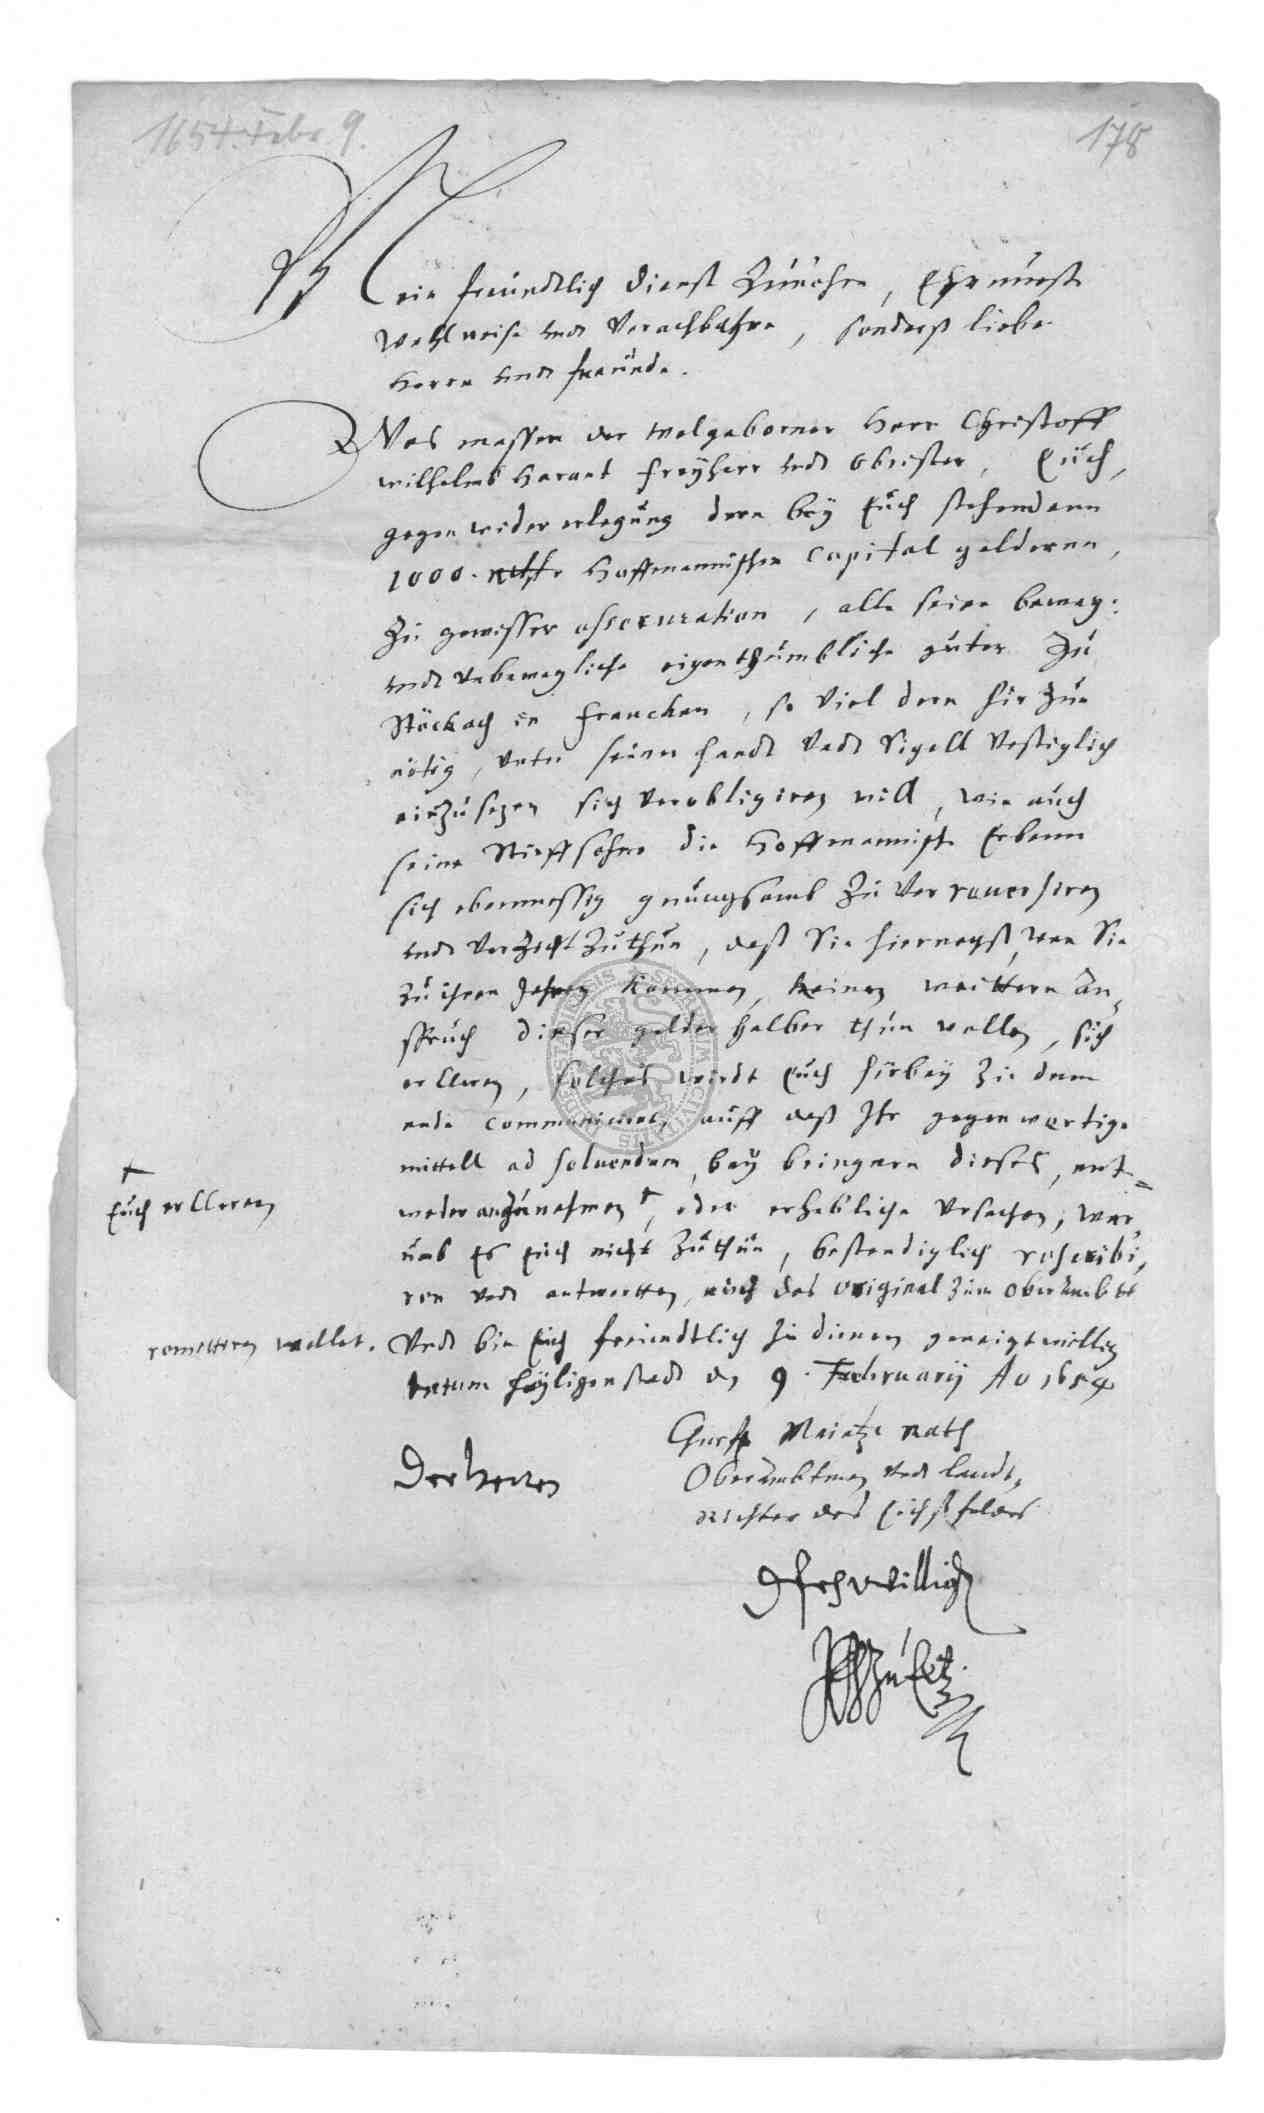 1654. Febr. 9.
178
Mein freündtlich dienst Zúúohrn, Ehrnúest
Wohlweise undt Vorachtbahre, sonderß liebe
Herrn undt freúnde.
Was massen der wolgeborner Herr Christoff
wilhelmb Harant Freÿherr undt Obrister, Eúch,
gegen wider erlegúng dern beÿ Eúch stehendenn
1000. rthlr Hoffmannischen Capital gelderen,
Zú gewisser assecuration, alle seine beweg:
undt unbewegliche eigenthúmbliche gúter Zú
Stöckach in Francken, so viel dern hirzúe
nötig, unter seiner handt undt Sigell Vestiglich
einzúsezen sich verobligiren will, wie aúch
seine Stieffsohne die Hoffmannische Erbenn
sich ebenmessig gnúngsamb Zú Verreuersiren
undt Verzicht Zúthún, daß Sie hiernegst, wan Sie
zú ihren Jahren kommen, keinen weittern An,
sprúch dieser gelder halber thún wollen, sich
erklleren, solches wirdt Eúch hirbeÿ Zú dem
ende communiciret, aúff daß Ihr gegenwertige
mittell ad soluendum, beÿ bringern dieses, ent=
weder anzúnehmen †, oder erhebliche Ursachen, war,
úmb Es Eúch nicht Zúthún, bestendiglich rescribi,
ren undt antwortten, aúch das original Zúm Oberambtt
† Eúch erklleren
remittiren wollet. Undt bin Eúch freúndtlich Zú dienen geneigtwillig
Datum Heÿligenstadt den 9. Februarÿ Ao 1654
Chúrf. Maintz. Rath
Oberambtman undt landt,
richter des Eichßfeldes
Der herren
dienstwillig
zú Eltz